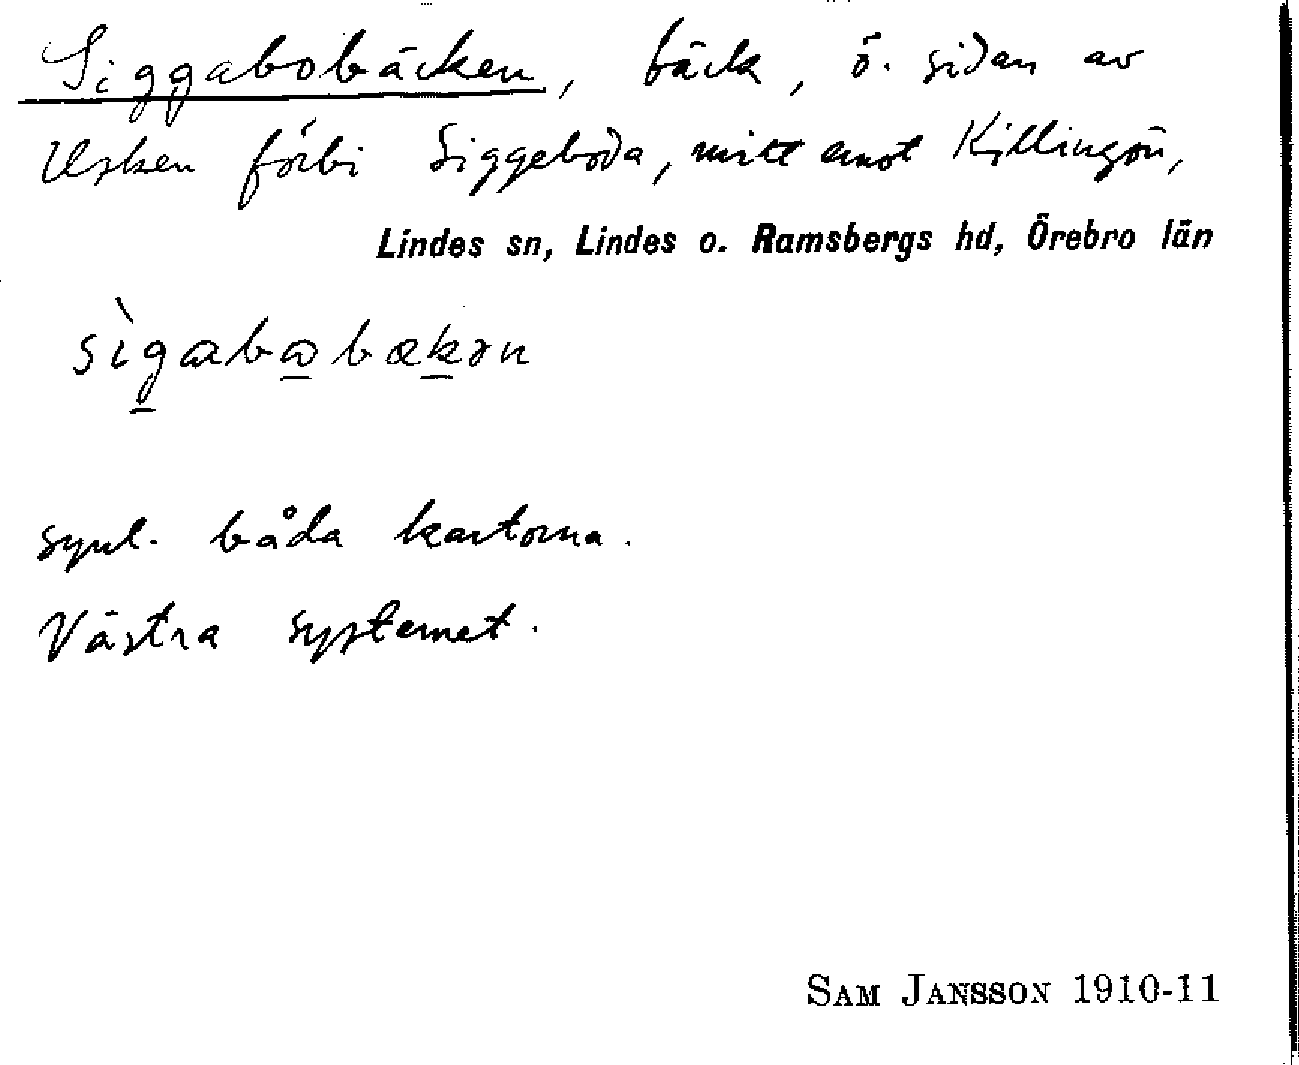 Siggabobäcken, bäck, ö. sidan av
Usken förbi Siggeboda, mitt emot Killingön,
Lindes sn, Lindes o. Ramsbergs hd, Örebro län
sìgabωbækən
synl. båda kartorna.
Västra systemet.
SAM JANSSON 1910-11